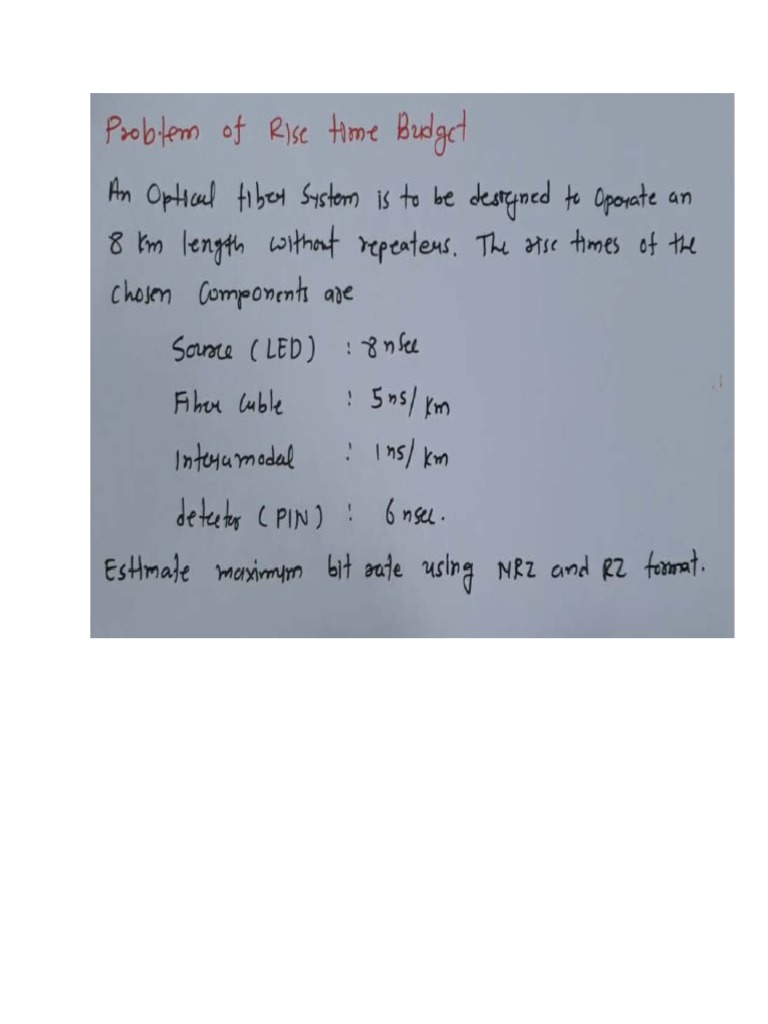 Problem of Rise time Budget
An Optical fiber System is to be designed to Operate an
8 Km length without repeaters. The rise times of the
Chosen Components are
Source (LED) : 8 nsec
Fiber Cable : 5 ns/km
Intermodal : 1 ns/km
detector (PIN) : 6 nsec.
Estimate maximum bit rate using NRZ and RZ format.